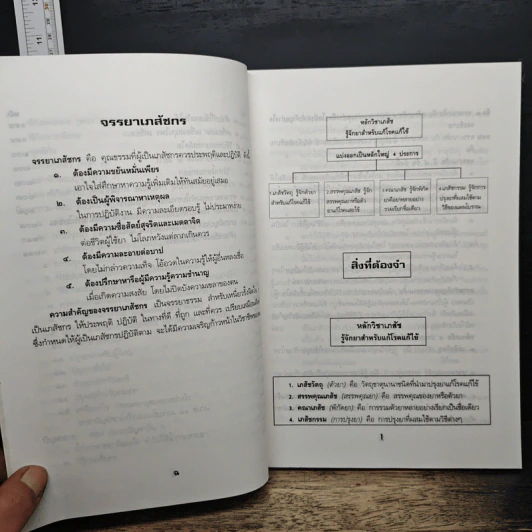 จรรยาเภสัชกร
จรรยาเภสัชกร คือ คุณธรรมที่ผู้เป็นเภสัชกรควรประพฤติและปฏิบัติ ดังนี้
๑. ต้องมีความขยันหมั่นเพียร
เอาใจใส่ศึกษาหาความรู้เพิ่มเติมให้ทันสมัยอยู่เสมอ
๒. ต้องเป็นผู้พิจารณาหาเหตุผล
ในการปฏิบัติงาน มีความละเอียดรอบรู้ ไม่ประมาท
๓. ต้องมีความซื่อสัตย์สุจริตและเมตตาจิต
ต่อชีวิตผู้ใช้ยา ไม่โลภหวังแต่ลาภเกินควร
๔. ต้องมีความละอายต่อบาป
โดยไม่กล่าวความเท็จ โอ้อวดในความรู้ให้ผู้อื่นหลงเชื่อ
๕. ต้องปรึกษาหารือผู้มีความรู้ความชำนาญ
เมื่อเกิดความสงสัย โดยไม่ปิดบังความเขลาของตน
ความสำคัญของจรรยาเภสัชกร เป็นจรรยาธรรม สำหรับ
เป็นเภสัชกร ให้ประพฤติ ปฏิบัติ ในทางที่ดี ที่ถูก และที่ควร เปรียบเสมือน
ซึ่งกำหนดให้ผู้เป็นเภสัชกรปฏิบัติตาม จะได้มีความเจริญก้าวหน้าในวิชาชีพ
หลักวิชาเภสัช
รู้จักยาสำหรับแก้โรคแก้ไข้
แบ่งออกเป็นหลักใหญ่ 4 ประการ
1.เภสัชวัตถุ รู้จักตัวยา
สำหรับแก้โรคแก้ไข้
2.สรรพคุณเภสัช รู้จัก
สรรพคุณยาหรือตัว
ยาแก้โรคและไข้
3.คณาเภสัช รู้จักพิกัด
4.เภสัชกรรม รู้จักการ
สิ่งที่ต้องจำ
หลักวิชาเภสัช
รู้จักยาสำหรับแก้โรคแก้ไข้
1. เภสัชวัตถุ (ตัวยา) คือ วัตถุธาตุนานาชนิดที่นำมาปรุงยาแก้โรคแก้ไข้
2. สรรพคุณเภสัช (สรรพคุณยา) คือ สรรพคุณของยาหรือตัวยา
3. คณาเภสัช (พิกัดยา) คือ การรวมตัวยาหลายอย่างเรียกเป็นชื่อเดียว
4. เภสัชกรรม (การปรุงยา) คือ การปรุงยาที่ผสมใช้ตามวิธีต่างๆ
1